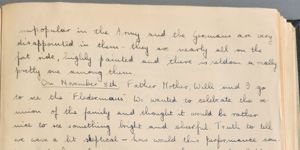 unpopular in the Army and the Germans are very
disappointed in them - they are nearly all on the
fat side, highly painted and there is seldom a really
pretty one among them.
On November 8th Father, Mother, Willi and I go
to see the Fledermaus. We wanted to celebrate the re-
union of the family and thought it would be rather
nice to see something bright and cheerful. Truth to tell
we were a bit skeptical - how would this performance